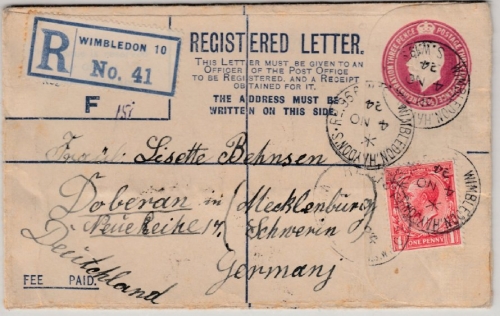 R WIMBLEDON 10
No. 41
REGISTERED LETTER.
THIS LETTER MUST BE GIVEN TO AN
OFFICER OF THE POST OFFICE
TO BE REGISTERED, AND A RECEIPT
OBTAINED FOR IT.
THE ADDRESS MUST BE
WRITTEN ON THIS SIDE.
F
4 NO
24
WIMBLEDON
Lisette Behnsen
Doberan (Mecklenburg
Neue Reihe 17. Schwerin)
Deutschland Germany
ONE PENNY
FEE PAID.